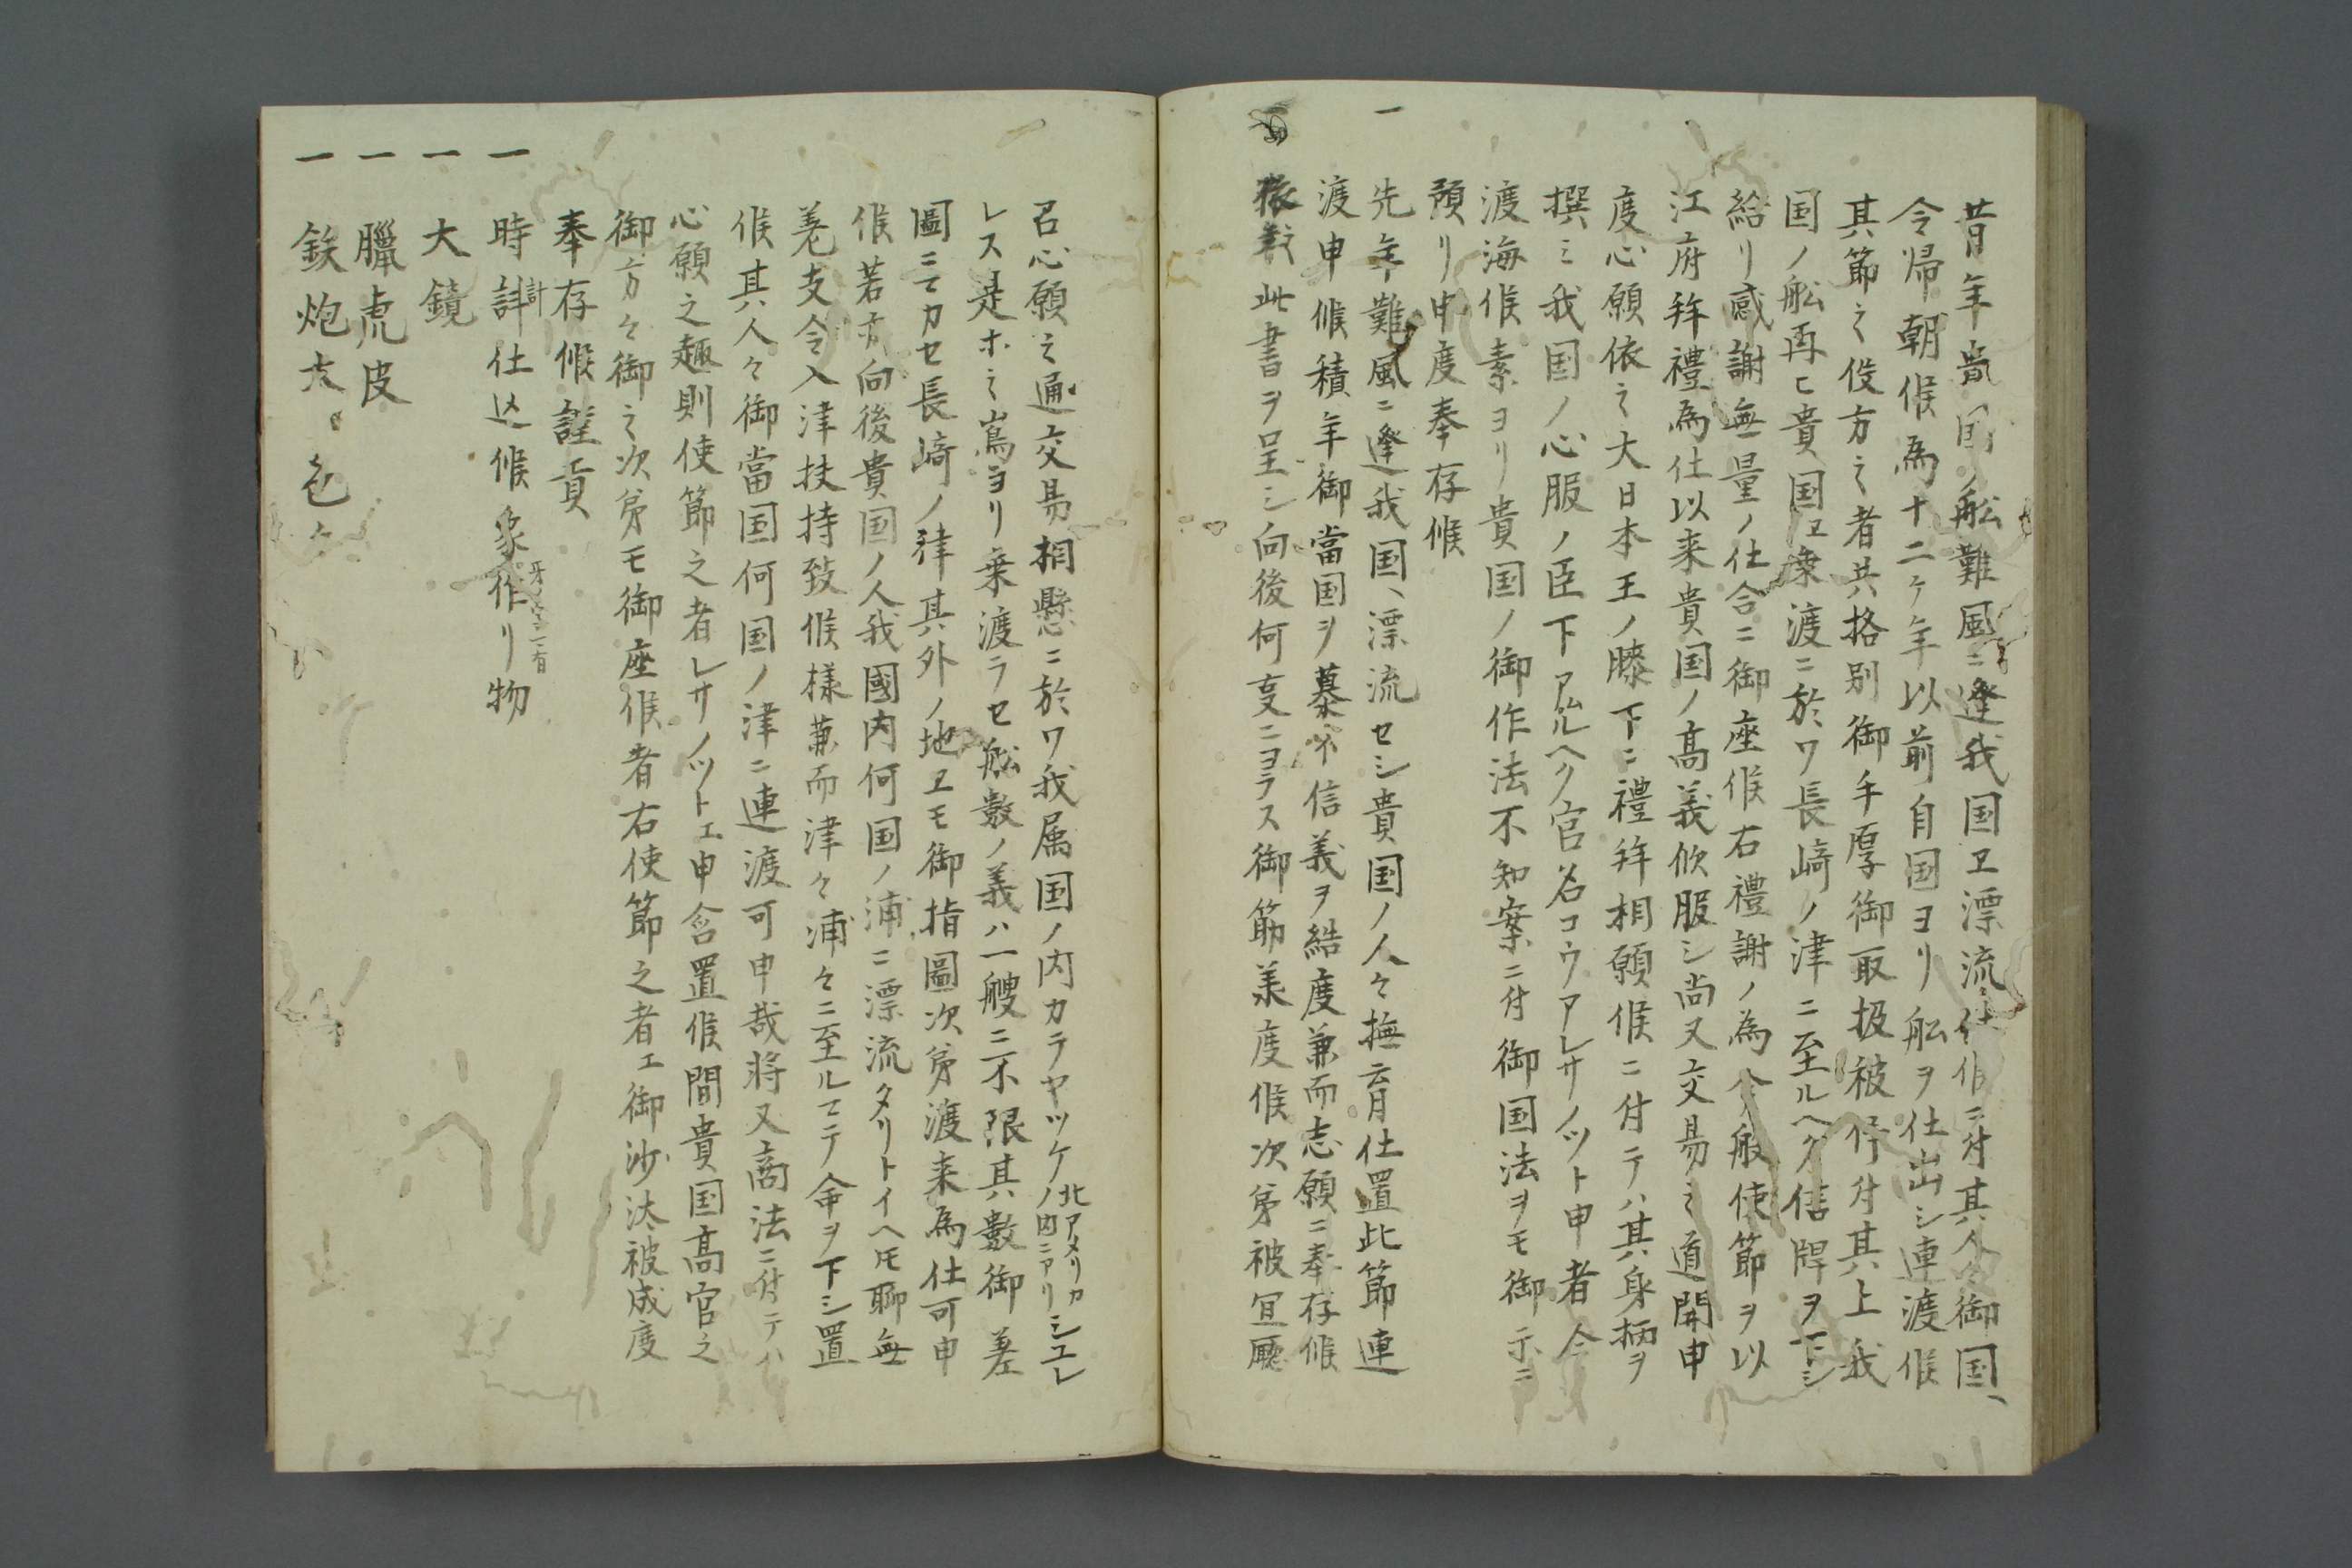 昔年貴国ノ舩難風ニ逢我国ヱ漂流仕候ニ付其人々御国、
令帰朝候為十二ケ年以前自国ヨリ舩ヲ仕出シ連渡候
其節之役方之者共格別御手厚御取扱被仰付其上我
国ノ舩再ヒ貴国ヱ乗渡ニ於ワ長崎ノ津ニ至ルヘク信牌ヲ下シ
給リ感謝無量ノ仕合ニ御座候右禮謝ノ為今般使節ヲ以
江府拜禮為仕以来貴国ノ高義欣服シ尚又交易之道開申
度心願依之大日本王ノ膝下ニ禮拜相願候ニ付テハ其身柄ヲ
撰ミ我国ノ心服ノ臣下アムルヘク官名コウアレサノツト申者令
渡海候素ヨリ貴国ノ御作法不知案ニ付御国法ヲモ御示ニ
預リ申度奉存候
一 先年難風ニ逢我国、漂流セシ貴国ノ人々撫育仕置此節連
渡申候積年御當国ヲ慕ネ信義ヲ結度兼而志願ニ奉存候
依此書ヲ呈シ向後何变ニヨラス御筋美度候次第被宜廳
召心願之通交易相懸ニ於ワ我属国ノ内カラヤツケノ北アメリカシユレノ内ニアリ
レス是ホ之嶌ヨリ乗渡ラセ舩數ノ義ハ一艘ニ不限其數御差
圖ニマカセ長崎ノ津其外ノ地ヱモ御指圖次第渡来為仕可申
候若亦向後貴国ノ人我國内何国ノ浦ニ漂流タリトイヘ𪜈聊無
差支令入津扶持致候様兼而津々浦々ニ至ルマテ命ヲ下シ置
候其人々御當国何国ノ津ニ連渡可申哉将又商法ニ付テハ
心願之趣則使節之者レサノツトエ申含置候間貴国高官之
御方々御之次第モ御座候者右使節之者エ御沙汰被成度
奉存候謹貢
一 時計仕込候象牙ノ作リ物
一 大鏡
一 臘虎皮
一 鉄炮大小色々